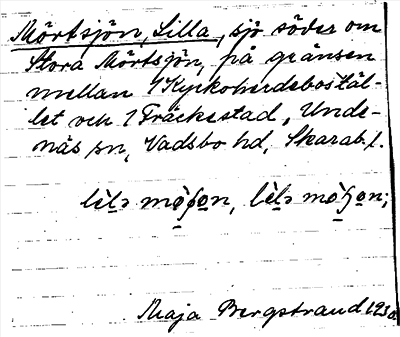 Mörtsjön, Lilla, sjö söder om
Stora Mörtsjön, på gränsen
mellan 1 Kyrkoherdeboställ-
let och 1 Fräckestad, Unde-
näs sn, Vadsbo hd, Skarab. l.
lɩ̀lə mø̀ʃon, lɩ̀lə mø̀ʃon;
Maja Bergstrand 1930.